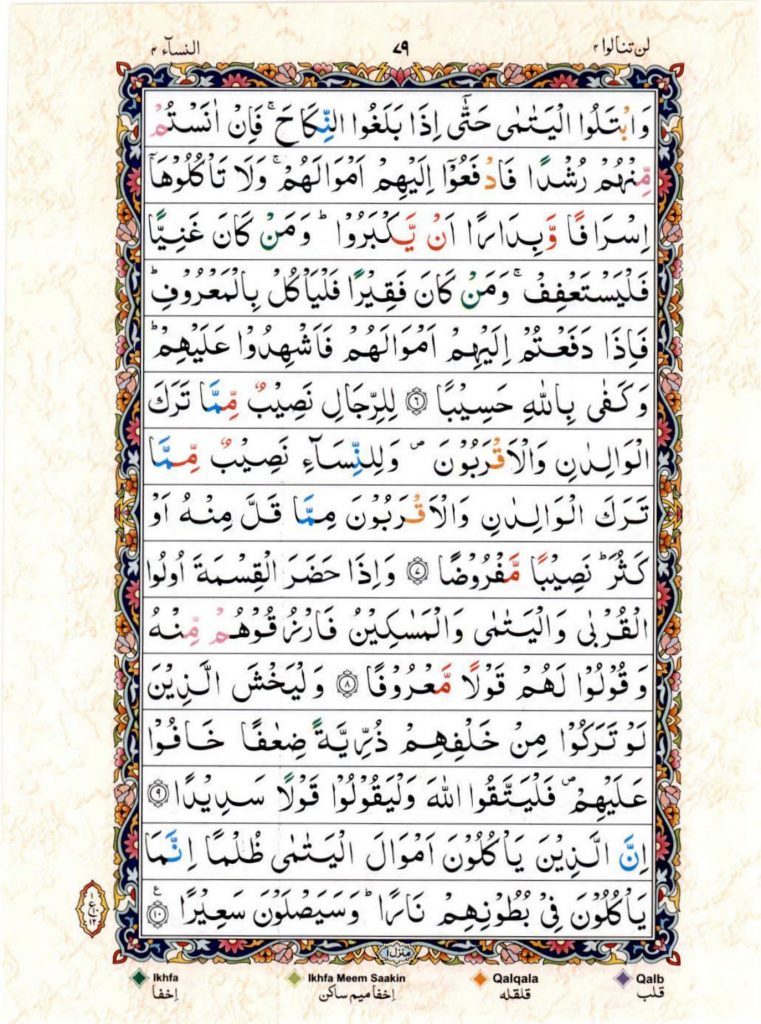 لن تنالوا ۴ ۷۹ النسآء ۴
وَابْتَلُوا الْيَتٰمٰى حَتّٰٓى اِذَا بَلَغُوا النِّكَاحَ ۚ فَاِنْ اٰنَسْتُمْ
مِّنْهُمْ رُشْدًا فَادْفَعُوْٓا اِلَيْهِمْ اَمْوَالَهُمْ ۚ وَلَا تَاْكُلُوْهَآ
اِسْرَافًا وَّبِدَارًا اَنْ يَّكْبَرُوْا ؕ وَمَنْ كَانَ غَنِيًّا
فَلْيَسْتَعْفِفْ ۚ وَمَنْ كَانَ فَقِيْرًا فَلْيَاْكُلْ بِالْمَعْرُوْفِ ؕ
فَاِذَا دَفَعْتُمْ اِلَيْهِمْ اَمْوَالَهُمْ فَاَشْهِدُوْا عَلَيْهِمْ ؕ
وَكَفٰى بِاللّٰهِ حَسِيْبًا ۝۶ لِلرِّجَالِ نَصِيْبٌ مِّمَّا تَرَكَ
الْوَالِدٰنِ وَالْاَقْرَبُوْنَ ۪ وَلِلنِّسَآءِ نَصِيْبٌ مِّمَّا
تَرَكَ الْوَالِدٰنِ وَالْاَقْرَبُوْنَ مِمَّا قَلَّ مِنْهُ اَوْ
كَثُرَ ؕ نَصِيْبًا مَّفْرُوْضًا ۝۷ وَاِذَا حَضَرَ الْقِسْمَةَ اُولُوا
الْقُرْبٰى وَالْيَتٰمٰى وَالْمَسٰكِيْنُ فَارْزُقُوْهُمْ مِّنْهُ
وَقُوْلُوْا لَهُمْ قَوْلًا مَّعْرُوْفًا ۝۸ وَلْيَخْشَ الَّذِيْنَ
لَوْ تَرَكُوْا مِنْ خَلْفِهِمْ ذُرِّيَّةً ضِعٰفًا خَافُوْا
عَلَيْهِمْ ۪ فَلْيَتَّقُوا اللّٰهَ وَلْيَقُوْلُوْا قَوْلًا سَدِيْدًا ۝۹
اِنَّ الَّذِيْنَ يَاْكُلُوْنَ اَمْوَالَ الْيَتٰمٰى ظُلْمًا اِنَّمَا
يَاْكُلُوْنَ فِيْ بُطُوْنِهِمْ نَارًا ؕ وَسَيَصْلَوْنَ سَعِيْرًا ۝۱۰ ع
۱ ع ۱۰ ۱۲
منزل ۱
Ikhfa Ikhfa Meem Saakin Qalqala Qalb
اِخفا اِخفا میم ساکن قلقله قلب